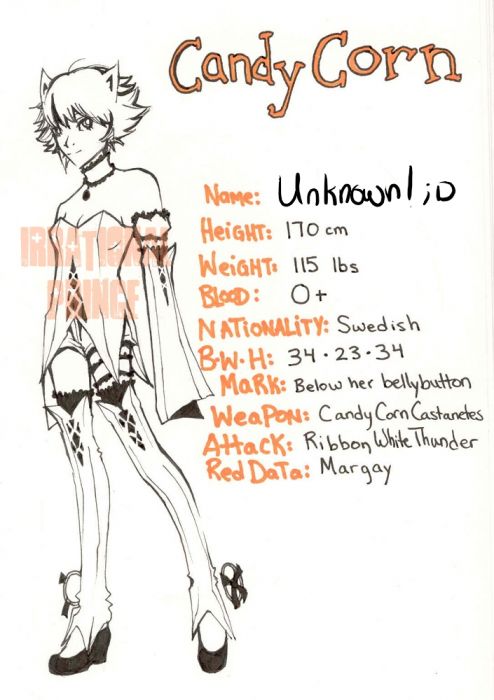 Candy Corn
Name: Unknown! ;D
Height: 170 cm
Weight: 115 lbs
Blood: O+
Nationality: Swedish
B·W·H: 34·23·34
Mark: Below her bellybutton
Weapon: Candy Corn Castanetes
Attack: Ribbon White Thunder
Red Data: Margay
IRRATIONAL
PRINCE